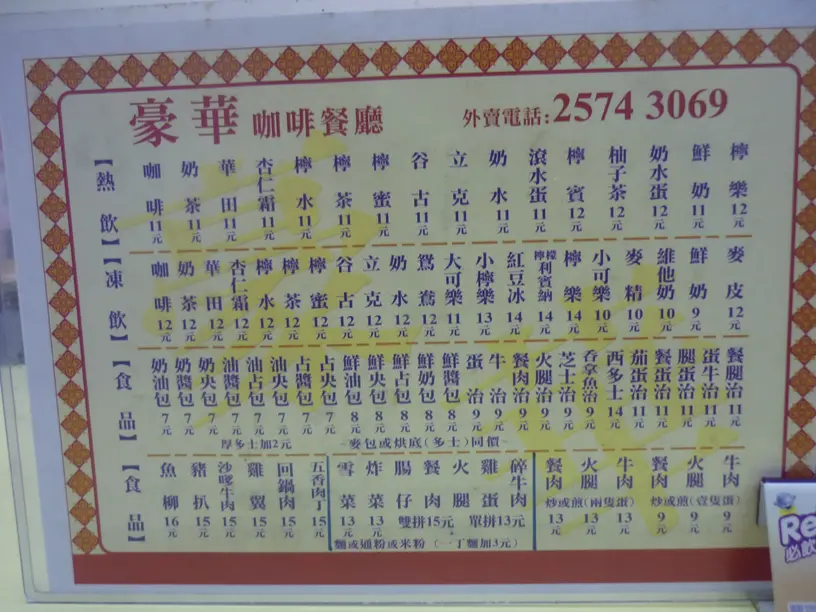 豪華 咖啡餐廳 外賣電話:2574 3069
【熱飲】 咖啡 11元 奶茶 11元 華田 11元 杏仁霜 11元 檸水 11元 檸茶 11元 檸蜜 11元 谷古 11元 立克 11元 奶水 11元 滾水蛋 11元 檸賓 12元 柚子茶 12元 奶水蛋 12元 鮮奶 11元 檸樂 12元
【凍飲】 咖啡 12元 奶茶 12元 華田 12元 杏仁霜 12元 檸水 12元 檸茶 12元 檸蜜 12元 谷古 12元 立克 12元 奶水 12元 鴛鴦 12元 大可樂 11元 小檸樂 13元 紅豆冰 14元 檸檬利賓納 14元 檸樂 14元 小可樂 10元 麥精 10元 維他奶 10元 鮮奶 9元 麥皮 12元
【食品】 奶油包 7元 奶醬包 7元 奶央包 7元 油醬包 7元 油占包 7元 油央包 7元 占醬包 7元 占央包 7元 鮮油包 8元 鮮央包 8元 鮮占包 8元 鮮奶包 8元 鮮醬包 8元 蛋治 9元 牛治 9元 餐肉治 9元 火腿治 9元 芝士治 9元 吞拿魚治 9元 西多士 14元 茄蛋治 11元 餐蛋治 11元 腿蛋治 11元 蛋牛治 11元 餐腿治 11元
厚多士加2元 ~麥包或烘底(多士)同價~
【食品】 魚柳 16元 豬扒 15元 沙嗲牛肉 15元 雞翼 15元 回鍋肉 15元 五香肉丁 15元 雪菜 13元 炸菜 13元 腸仔 餐肉 火腿 雞蛋 碎牛肉 雙拼15元 單拼13元
麵或通粉或米粉 (一丁麵加3元)
餐肉 火腿 牛肉 餐肉 火腿 牛肉
炒或煎(兩隻蛋) 炒或煎(壹隻蛋)
13元 13元 13元 9元 9元 9元
Re
必飲